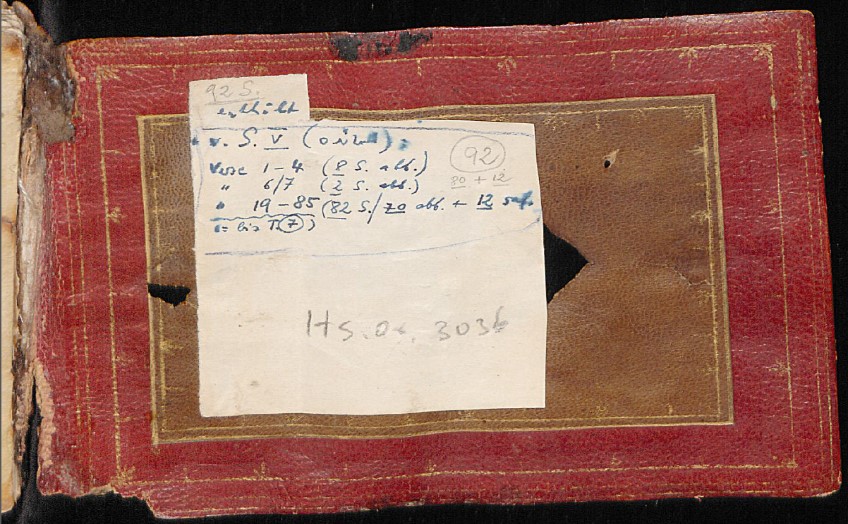 92 S.
enthält
v. S. V
92
Verse 1-4 (8 S. abb.)
80 + 12
" 6/7 (2 S. abb.)
" 19-85 (82 S./70 abb. + 12
= bis 7)
Hs. or. 3036